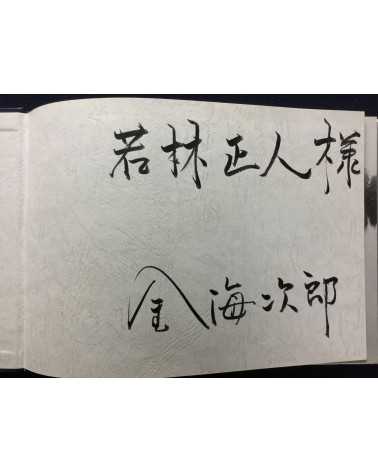 若林正人様
全海次郎